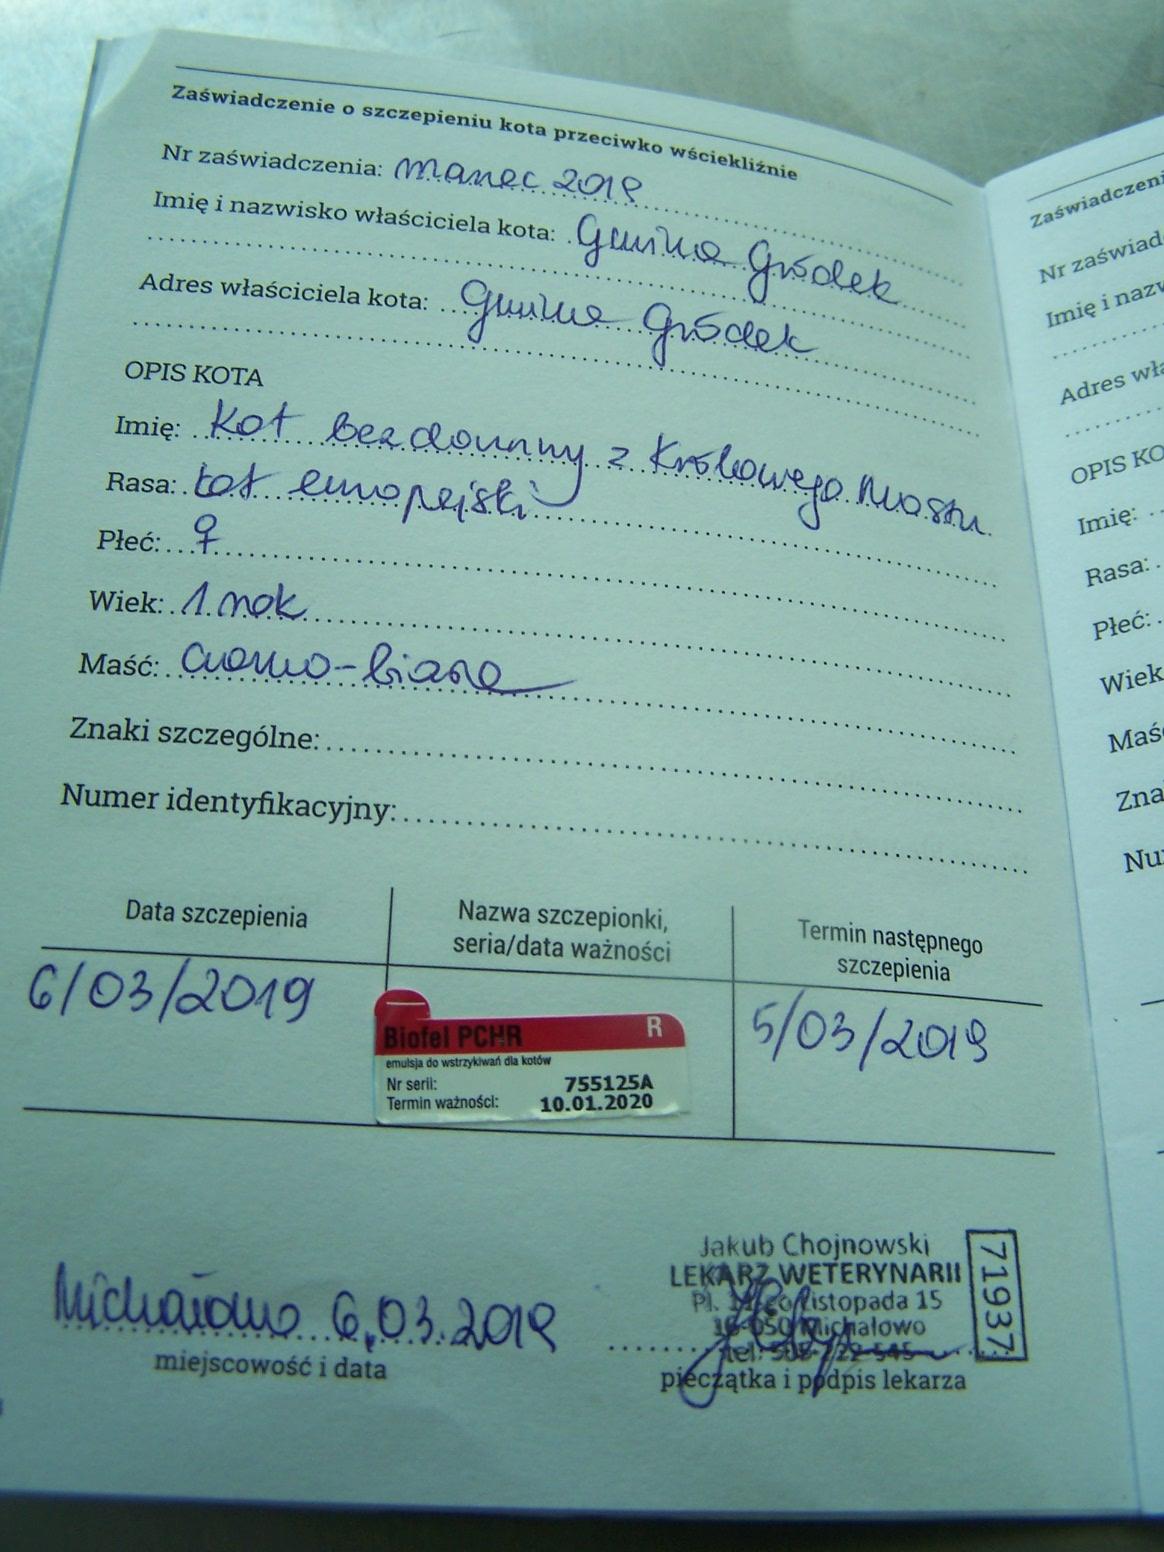 Zaświadczenie o szczepieniu kota przeciwko wściekliźnie
Nr zaświadczenia: marzec 2019
Imię i nazwisko właściciela kota: Gmina Gródek
Adres właściciela kota: Gmina Gródek
OPIS KOTA
Imię: Kot bezdomny z Królowego Mostu
Rasa: kot europejski
Płeć: ♀
Wiek: 1 rok
Maść: czarno-biała
Znaki szczególne:
Numer identyfikacyjny:
Data szczepienia
Nazwa szczepionki,
seria/data ważności
Termin następnego
szczepienia
6/03/2019
Biofel PCHR R
emulsja do wstrzykiwań dla kotów
Nr serii: 755125A
Termin ważności: 10.01.2020
5/03/2019
Jakub Chojnowski
LEKARZ WETERYNARII
Pl. Listopada 15
16-050 Michałowo
tel.
71937
Michałowo 6.03.2019
miejscowość i data
pieczątka i podpis lekarza
Zaświadczeni
Nr zaświad
Imię i nazw
Adres wła
OPIS KO
Imię:
Rasa:
Płeć:
Wiek
Maś
Zna
Nu